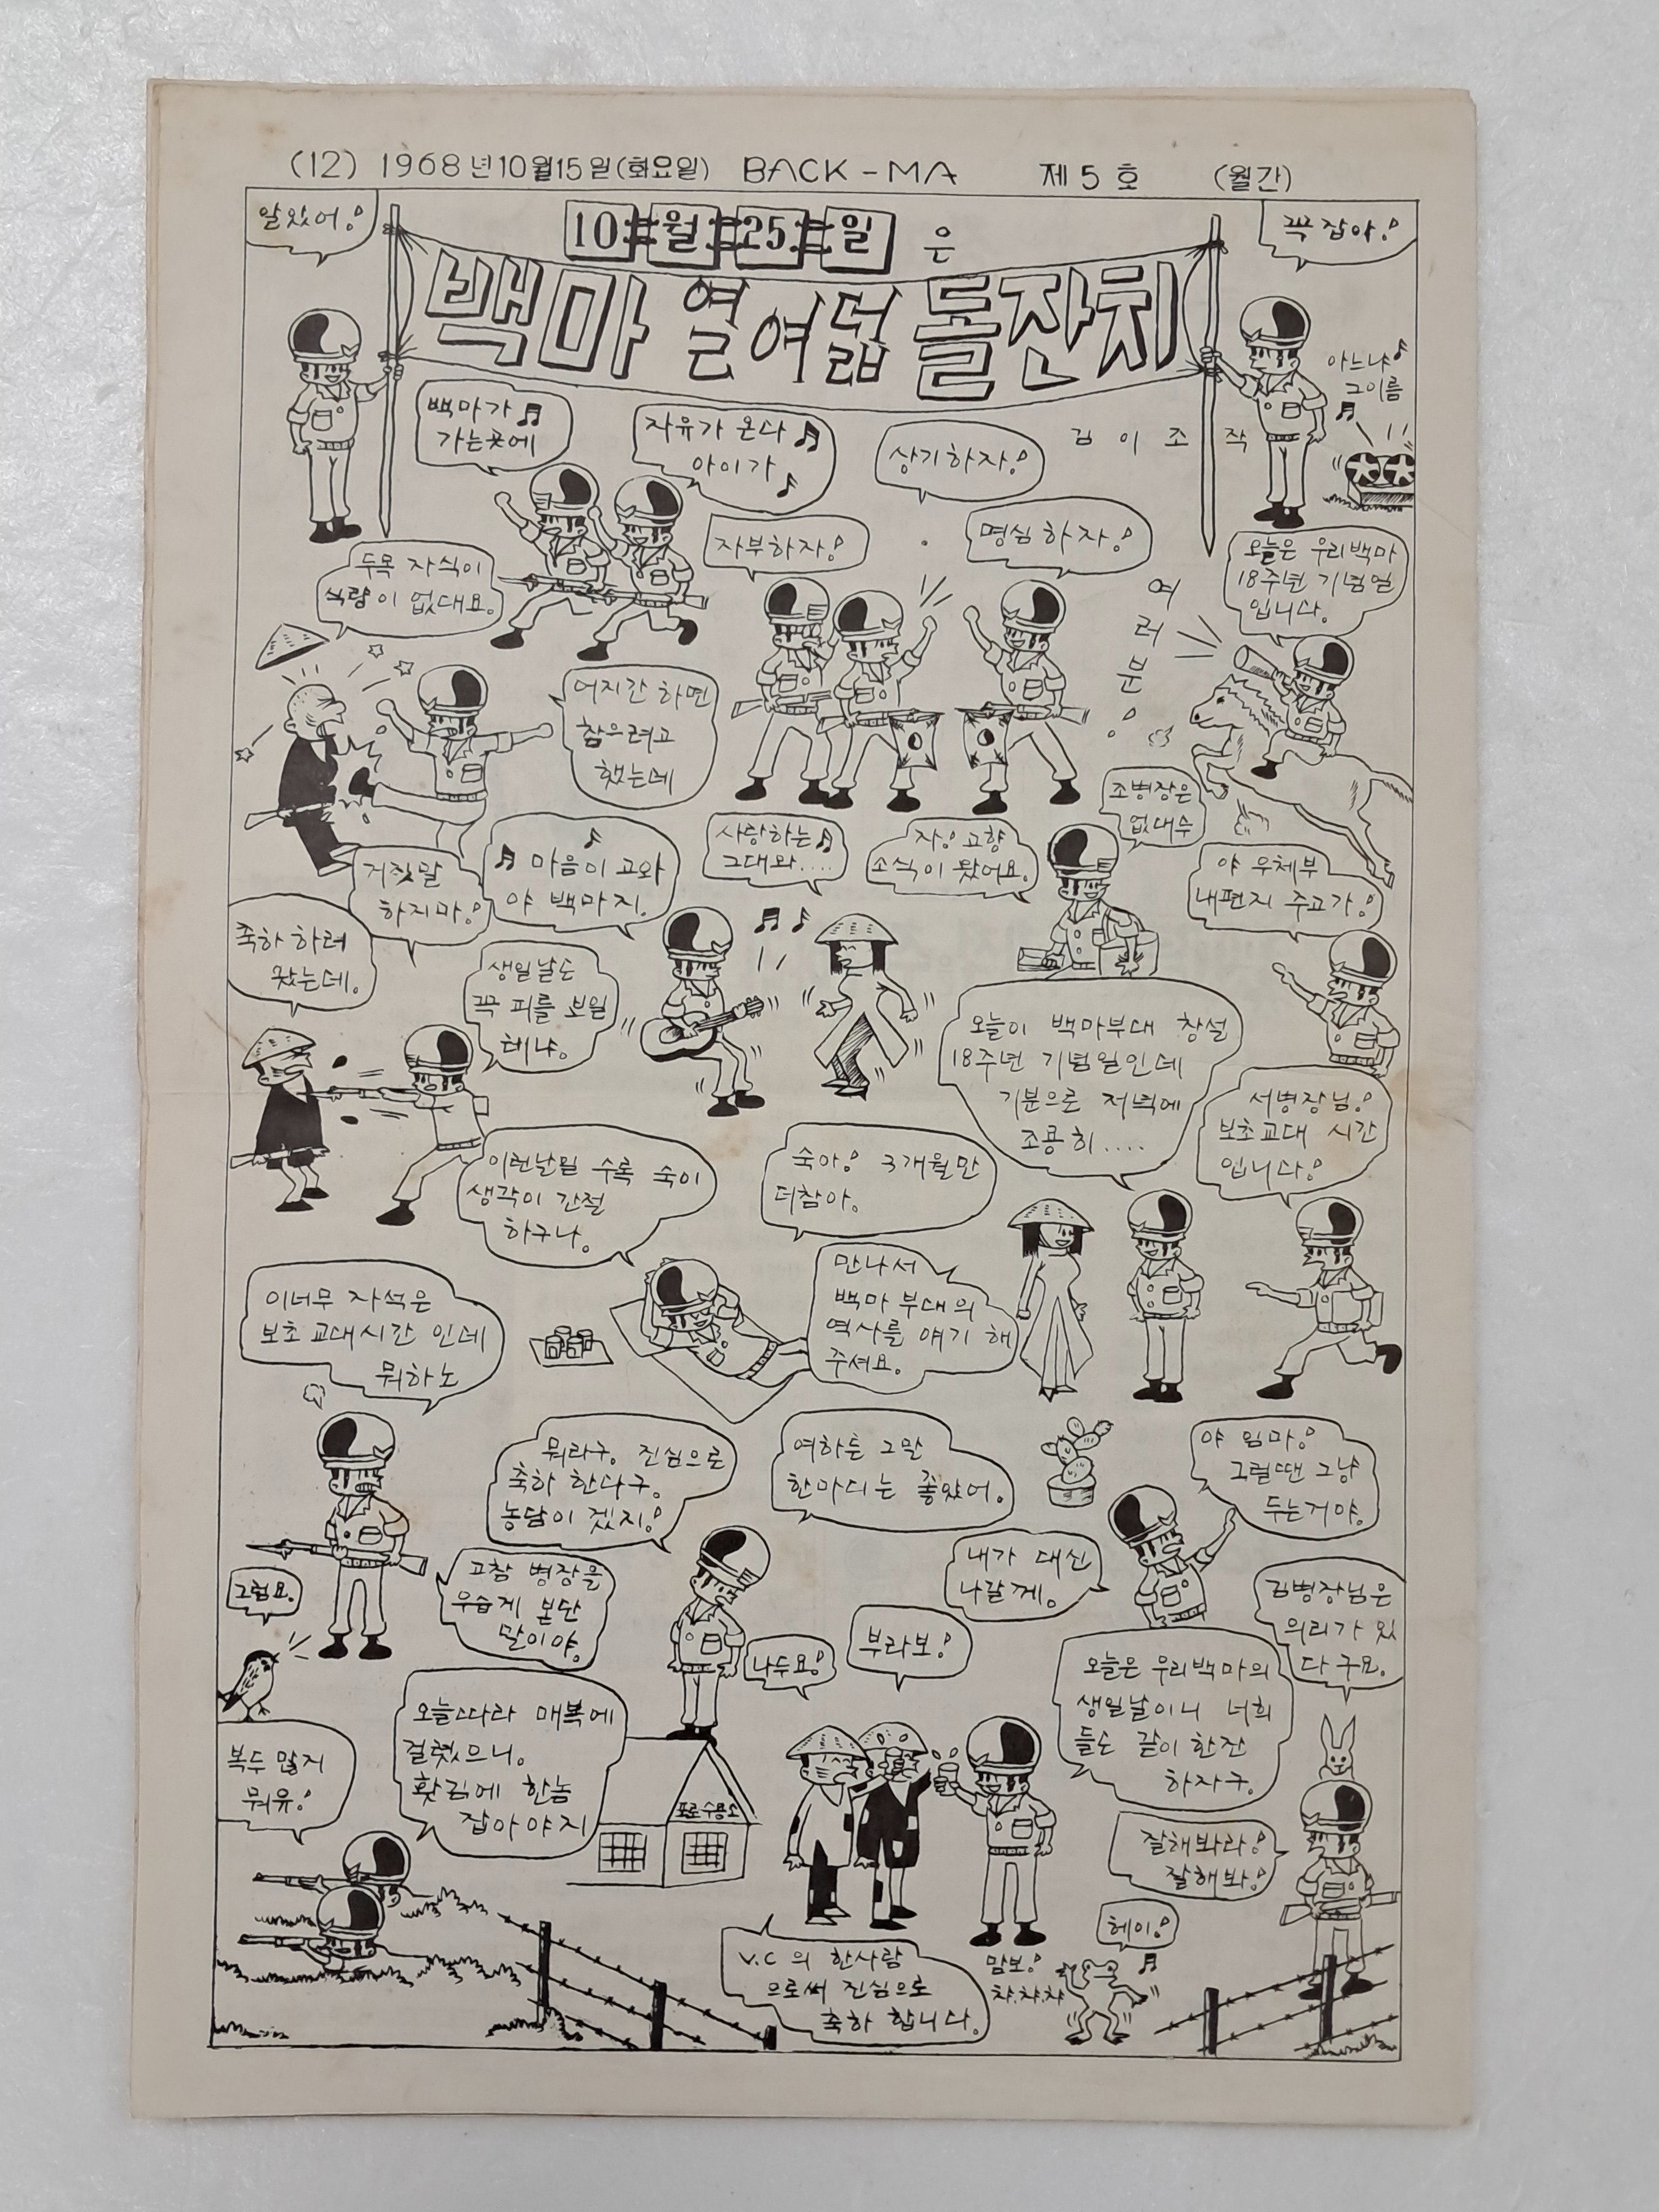 (12) 1968년10월15일(화요일) BACK-MA 제5호 (월간)
알았어!
10월25일은
꼭 잡아!
백마 열여덟 돌잔치
아느냐
그이름
백마가
가는곳에
자유가 온다
아이가
상기하자!
김이조 작
자부하자!
명심하자!
오늘은 우리백마
18주년 기념일
입니다.
두목 자식이
식량이 없대요.
여러분!
어지간 하면
참으려고
했는데
조병장은
없대수
거짓말
하지마!
마음이 고와
야 백마지.
사랑하는
그대와....
자! 고향
소식이 왔어요.
야 우체부
내편지 주고가!
축하 하러
왔는데.
생일날은
꼭 피를 보일
테냐.
오늘이 백마부대 창설
18주년 기념일인데
기분으로 저녁에
조용히....
서병장님!
보초교대 시간
입니다!
이런날일 수록 숙이
생각이 간절
하구나.
숙아! 3개월만
더참아.
이너무 자석은
보초 교대시간 인데
뭐하노
만나서
백마 부대의
역사를 얘기 해
주셔요.
뭐라구. 진심으로
축하 한다구.
농담이 겠지!
여하튼 그말
한마디는 좋았어.
야 임마!
그럴땐 그냥
두는거야.
그럼요.
고참 병장을
우습게 본단
말이야.
내가 대신
나갈께.
김병장님은
의리가 있
다구요.
나두요!
부라보!
복두 많지
뭐유!
오늘따라 매복에
걸렸으니.
홧김에 한놈
잡아야지
포로수용소
오늘은 우리백마의
생일날이니 너희
들은 같이 한잔
하자구.
잘해봐라!
잘해봐!
V.C 의 한사람
으로써 진심으로
축하 합니다.
맘보!
차차차
헤이!